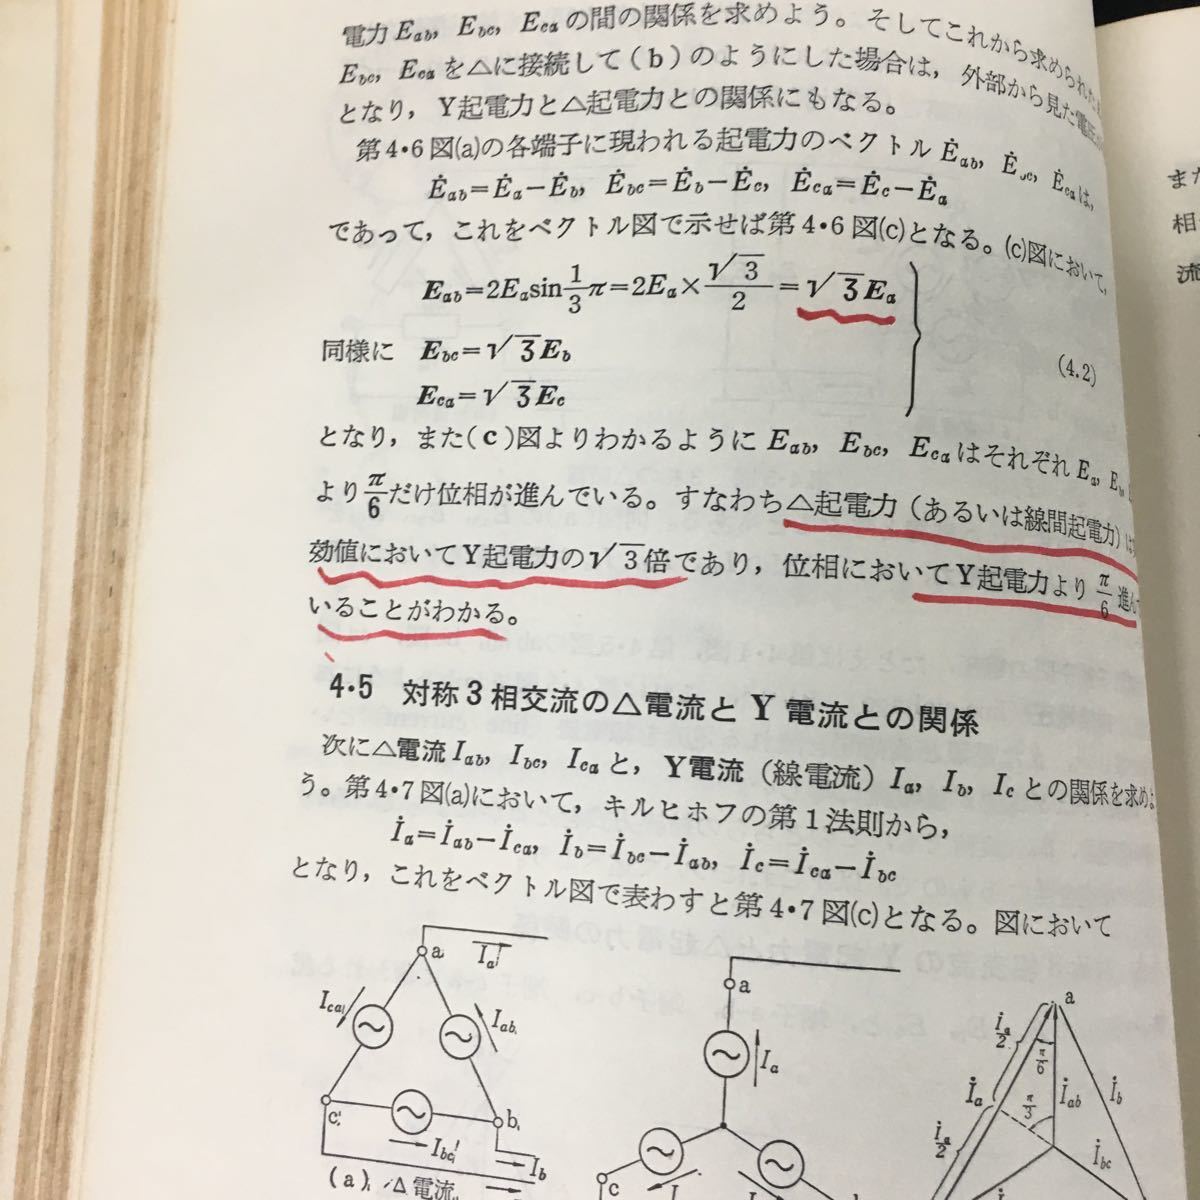 電力 Eab, Ebc, Eca の間の関係を求めよう。そしてこれから求められた
Ebc, Eca を△に接続して(b)のようにした場合は, 外部から見た電圧
となり, Y起電力と△起電力との関係にもなる。
第4・6図(a)の各端子に現われる起電力のベクトル Ėab, Ėbc, Ėca は,
Ėab=Ėa−Ėb, Ėbc=Ėb−Ėc, Ėca=Ėc−Ėa
であって, これをベクトル図で示せば第4・6図(c)となる。(c)図において,
Eab=2Ea sin 1/3 π=2Ea×√3/2=√3Ea
同様に Ebc=√3Eb
Eca=√3Ec
(4.2)
となり, また(c)図よりわかるように Eab, Ebc, Eca はそれぞれ Ea, Eb,
より π/6 だけ位相が進んでいる。すなわち△起電力(あるいは線間起電力)は
効値においてY起電力の√3倍であり, 位相においてY起電力より π/6 進んで
いることがわかる。
4・5 対称3相交流の△電流とY電流との関係
次に△電流 Iab, Ibc, Ica と, Y電流(線電流)Ia, Ib, Ic との関係を求めよ
う。第4・7図(a)において, キルヒホフの第1法則から,
İa=İab−İca, İb=İbc−İab, İc=İca−İbc
となり, これをベクトル図で表わすと第4・7図(c)となる。図において
a
Ia
Ica
Iab
c
b
Ibc
Ib
(a) △電流
a
Ia
c
a
İa/2
π/6
İa
π/3
İab
İb
İa/2
İbc
また
相
流